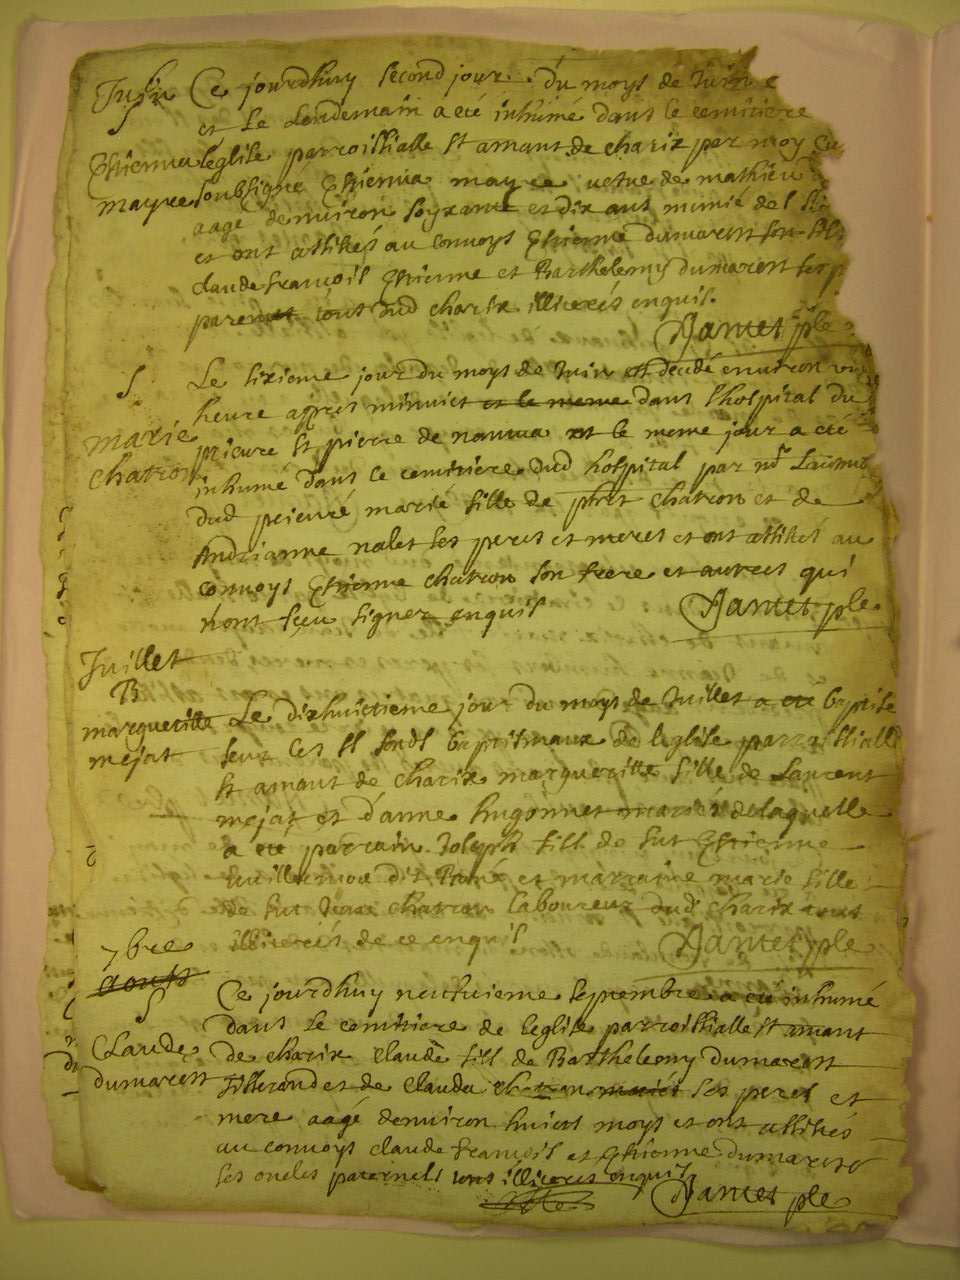 Juin
S
Ce jourdhuy second jour du moys de Juin e
et Le Lendemain a eté inhumé dans le cemitiere
Estienna
leglise parroissialle st amant de charix par moy Cu
mayre
soubsigné Estienna mayre vefve de mathieu
aage denviron soyxante et dix ans munié des
et ont assistés au convoys Estienne dumarest son fils
claude françois Estienne et Barthelemy dumarest ses p
parents tous dud charix illiterés enquis.
Jantet ptre
S
marie
chatron
Le sixieme jour du moys de Juin est decedé environ un
heure appres minuict et le meme dans l'hospital du
prieuré st pierre de nantua et le meme jour a eté
inhumé dans le cemitiere dud hospital par
dud prieuré marie fille de phet chatron et de
Andrianne nalet ses peres et meres et ont assistés au
convoys Estienne chatron son frere et autres qui
nont sceu signer enquis
Jantet ptre
Juillet
B
margueritte
mejat
Le dixhuictieme jour du moys de Juillet a eté baptisé
sur Les st fonds baptismaux de leglise parroissialle
st amant de charix margueritte fille de Laurent
mejat et danne hugonnet mariés de laquelle
a eté parrain Joseph fils de fut Estienne
Vuillermoz dit et marraine marie fille
de fut Jean chatron laboureur dud charix tous
illiterés de ce enquis
Jantet ptre
7bre
aoust
S
Claude
dumarest
Ce jourdhuy neufvieme septembre a eté inhumé
dans Le cemitiere de leglise parroissialle st amant
de charix claude fils de Barthelemy dumarest
tisserand et de clauda chatron mariés ses peres et
mere aagé denviron huict moys et ont assistés
au convoys claude françois et Estienne dumarest
ses oncles paternels tous illiteres enquis
Jantet ptre